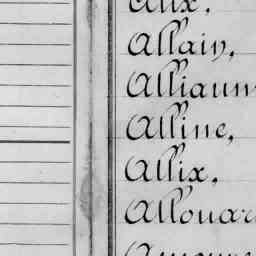 Alix,
Allain,
Alliaum
Alline,
Allix,
Allouar